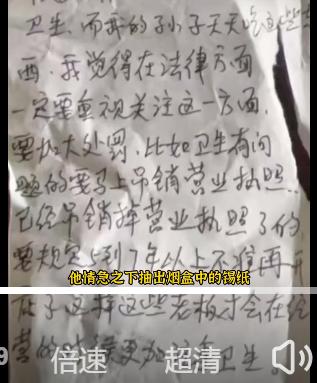 卫生,而我的孙子天天吃这些
西,我觉得在法律方面
一定要重视关注这一方面,
要加大处罚,比如卫生有问
题的要马上吊销营业执照,
已经吊销掉营业执照了的
要规定5到7年以上不准再开
他情急之下抽出烟盒中的锡纸
店了这样这些老板才会在经
营的时候更加 卫生
9 倍速 超清